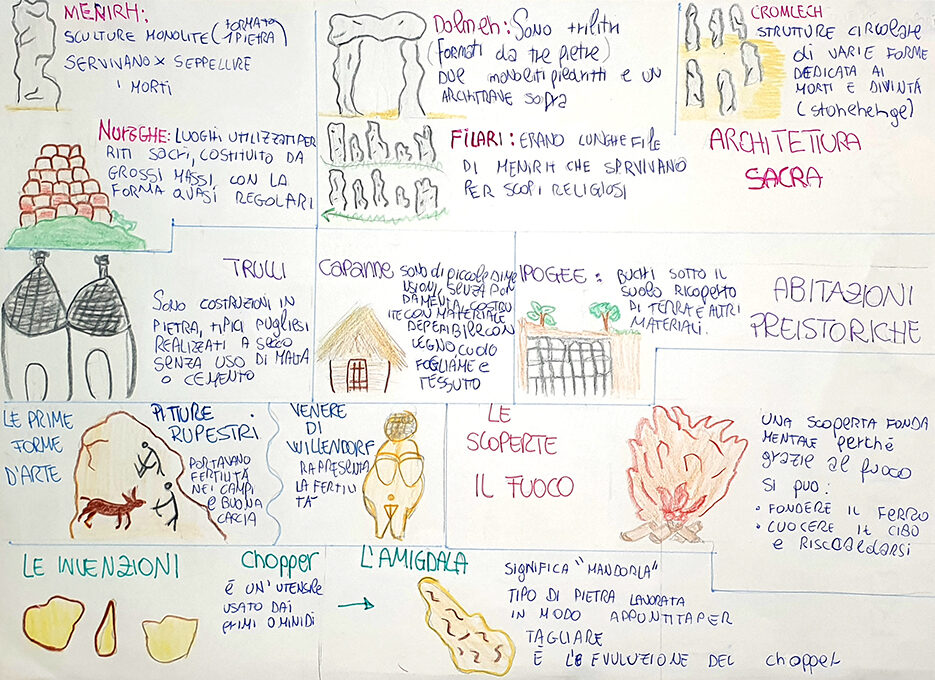 MENIRH:
SCULTURE MONOLITE (FORMATO 1 PIETRA)
SERVIVANO x SEPPELLIRE
I MORTI
Dolmeh: SONO trilith
(formati da tre pietre)
DUE monoliti piedritti e UN
ARCHITRAVE SOPRA
CROMLECH
STRUTTURE CIRCOLARE
di VARIE FORME
DEDICATA AI
MORTI E DIVINTÁ
(stonehehge)
NURAGHE: LUOGHI UTILIZZATI PER
RITI SACRI, COSTITUITO DA
GROSSI MASSI, CON LA
FORMA QUASI REGOLARI
FILARI: ERANO LUNGHE FILE
DI MENIRH CHE SERVIVANO
PER SCOPI RELIGIOSI
ARCHITETTURA
SACRA
TRULLI
SONO COSTRUZIONI IN
PIETRA, TIPICI PUGLIESI
REALIZZATI A SECO
SENZA USO DI MALTA
O CEMENTO
CAPANNE SONO di PICCOLE DIME
NSIONI, SENZA FON
DAMENTA, COSTRU
ITE CON MATERIALE
DEPERIBILE CON
LEGNO, CUOIO
FOGLIAME E
TESSUTO
IPOGEE: BUCHI SOTTO IL
SUOLO RICOPETO
DI TERRA E ALTRI
MATERIALI.
ABITAZIONI
PREISTORICHE
LE PRIME
FORME
D'ARTE
PITTURE
RUPESTRI
PORTAVANO
FERTILITÁ
NEI CAMPI
E BUONA
CACCIA
VENERE
DI
WILLENDORF
RAPPRESENTA
LA FERTILI
TÁ
LE
SCOPERTE
IL FUOCO
UNA SCOPERTA FONDA
MENTALE perché
grazie al fuoco
SI PUO:
• FONDERE IL FERRO
• CUOCERE IL CIBO
E RISCALDARSI
LE INVENZIONI
Chopper
É UN'UTENSILE
USATO DAI
PRIMI OMINIDI
L'AMIGDALA
SIGNIFICA "MANDORLA"
TIPO DI PIETRA LAVORATA
IN MODO APPUNTITA PER
TAGLIARE
É L'EVULUZIONE DEL Chopper